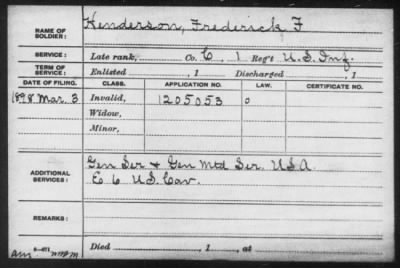 NAME OF SOLDIER: Henderson, Frederick F
SERVICE: Late rank, Co. C, 1 Reg't U.S. Inf.
TERM OF SERVICE: Enlisted , 1 Discharged , 1
DATE OF FILING. CLASS. APPLICATION NO. LAW. CERTIFICATE NO.
1898 Mar. 3 Invalid, 1205053 0
Widow,
Minor,
ADDITIONAL SERVICES: Gen Ser & Gen Mtd Ser. U.S.A.
E 6 U.S. Cav.
REMARKS:
Died , 1 , at